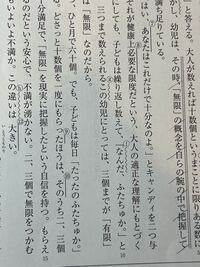 と答える。大人が数えれば十数個というまことに限りある
かし幼児は、その時、「無限」の概念を自らの腕の中で把握して
も満ち足りている。
、「あなたはこれだけで十分なのよ。」とキャンディを二つ与
それが健康上必要な限度だという、大人の適正な理解にもとづく
にしても、子どもは繰り返し数えて、「なんだ、ふたちゅか。」と 10
三つまで数えられるこの幼児にとっては、三個までが「有限」
は「無限」なのだから。
つ、ひと月で六十個。でも、子どもは毎日「たったのふたちゅか。」
。どさっと十数個を一度にもらったほうは、そのうち二、三個
十分満足で、「無限」を現実に把握したという自信を持つ。もらえ 15
のだという安心で、不満が湧かない。二、三個で無限をつかむ
もいよいよ不満か。この違いは大きい。